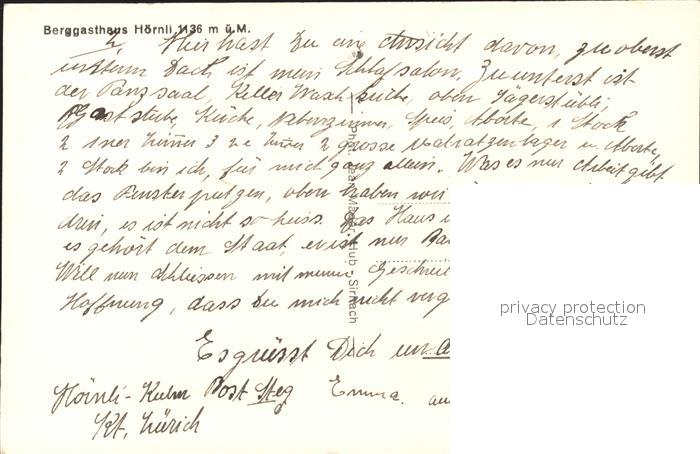 Berggasthaus Hörnli 1136 m ü.M.
Hier hast Du eine Ansicht davon, zu oberst
unterm Dach ist mein Schlafsalon, Zu unterst ist
der Tanzsaal, Keller Waschküche, oben Jägerstübli,
Gaststube, Küche, Nebenzimmer, Aborte, 1 Stock
2 1ner Zimmer 3 2e Zimmer 2 grosse Matratzenlager u. Aborte,
2 Stock bin ich, für mich ganz allein. Was es nur Arbeit gibt
das Fensterputzen, oben haben wir
drin, es ist nicht so heiss. Das Haus
es gehört dem Staat, er ist nur
Will nun schliessen mit meiner
Hoffnung, dass Du mich nicht
Es grüsst Dich
Hörnli-Kulm Post Steg Emma.
Kt. Zürich
Hub-Sirnach
privacy protection
Datenschutz